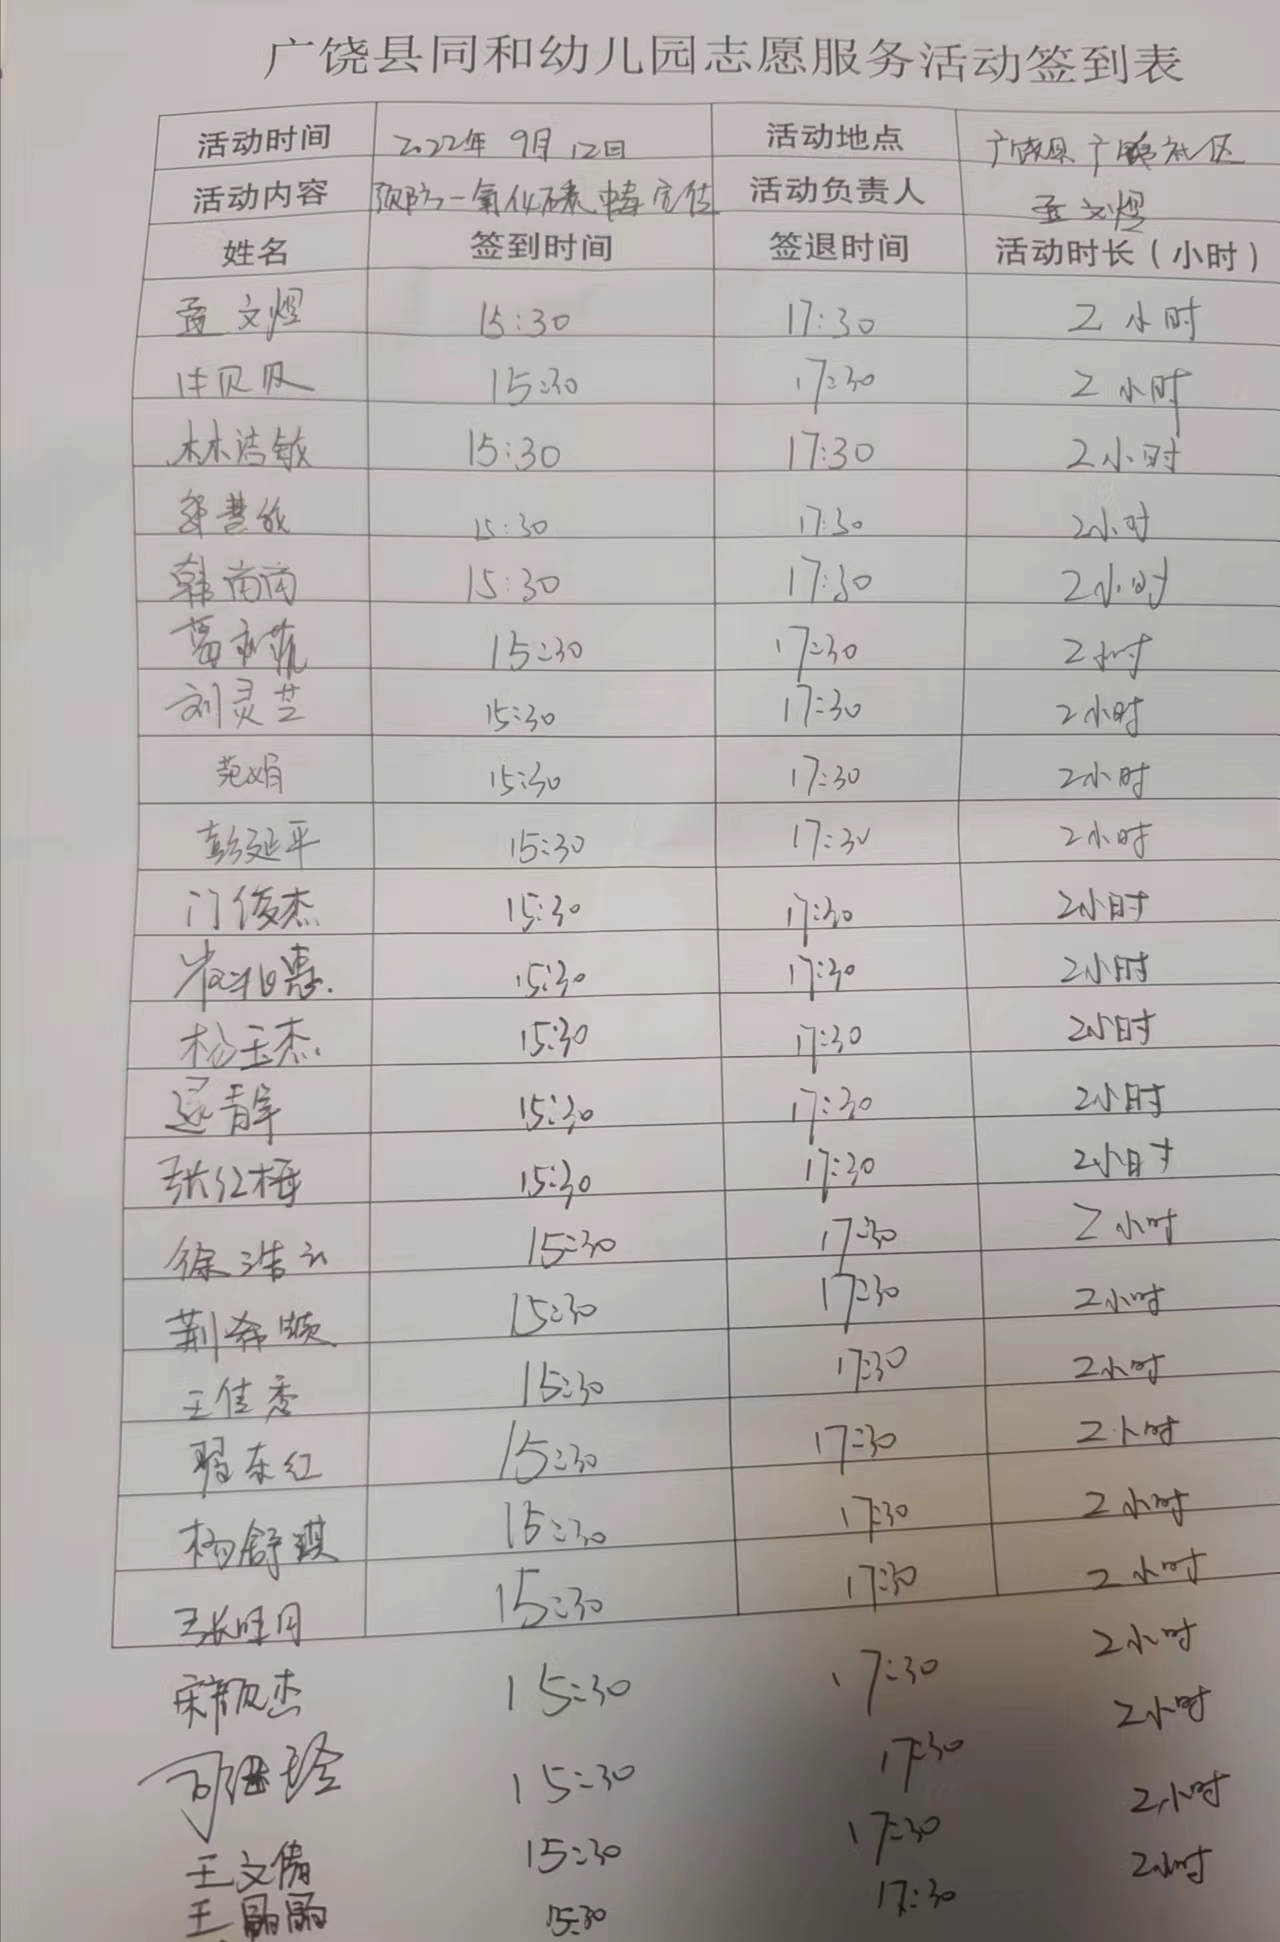 广饶县同和幼儿园志愿服务活动签到表
活动时间 2022年 9月 12日 活动地点 广饶县 广 社区
活动内容 预防一氧化碳中毒宣传 活动负责人 孟文煜
姓名 签到时间 签退时间 活动时长（小时）
孟文煜 15:30 17:30 2小时
贝贝 15:30 17:30 2小时
林洁敏 15:30 17:30 2小时
15:30 17:30 2小时
韩南南 15:30 17:30 2小时
葛 15:30 17:30 2小时
刘灵芝 15:30 17:30 2小时
范娟 15:30 17:30 2小时
彭延平 15:30 17:30 2小时
门俊杰 15:30 17:30 2小时
15:30 17:30 2小时
杨玉杰 15:30 17:30 2小时
逯青 15:30 17:30 2小时
张红梅 15:30 17:30 2小时
徐浩 15:30 17:30 2小时
荆希顺 15:30 17:30 2小时
王佳秀 15:30 17:30 2小时
翟东红 15:30 17:30 2小时
杨舒琪 15:30 17:30 2小时
张旺月 15:30 17:30 2小时
宋颖杰 15:30 17:30 2小时
15:30 17:30 2小时
王文倩 15:30 17:30 2小时
王晶晶 15:30 17:30 2小时